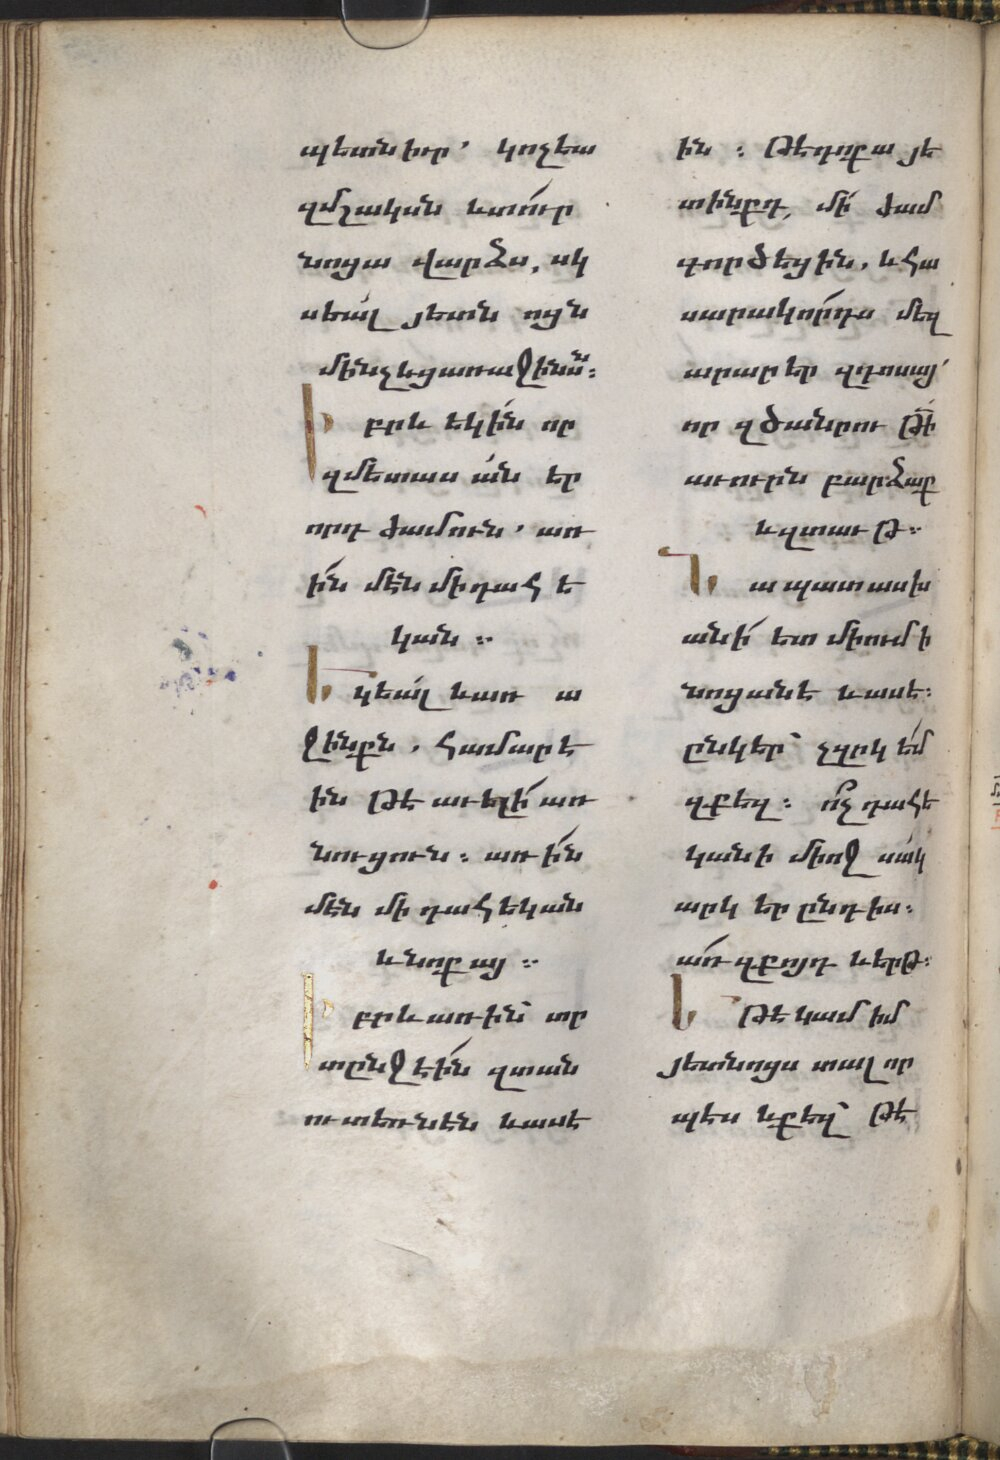 պետն իւր՝ կոչեա
զմշական եւ տո՛ւր
նոցա վարձս, սկ
սեա՛լ յետն ոցն
մինչեւ ցառաջինսն։
Իբրեւ եկի՛ն որ
զմետասա ան եր
որդ ժամուն՝ առ
ի՛ն մէն մի դահ ե
կան ։
Եկեա՛լ եւ առ ա
ջինքն, համար է
ին թէ առելի՛ առ
նուցուն։ առ ի՛ն
մէն մի դահեկան
եւ նոքայ ։
Իբրեւ առին՝ տր
տընջէի՛ն զտան
ուտեռնէն եւ ասէ
ին ։ Թէդոքա յե
տինքդ, մի՛ ժամ
գործեցին, եւ հա
սարակո՛րդս մեզ
արար եր զդոսայ՝
որ զծանրու թի
աւուրն բարձաք
եւ զտաւ թ։
Նա պատասխ
անի՛ ետ միում ի
նոցանէ եւ ասէ։
ընկեր՝ չզրկ ե՛մ
զքեզ։ ո՞չ դահե
կանի միոջ սա՛կ
արկ եր ընդ իս։
ա՛ռ զքոյդ եւ երթ։
Եթէ կամ իմ
յետնոցս տալ որ
պէս եւ քեզ՝ թէ